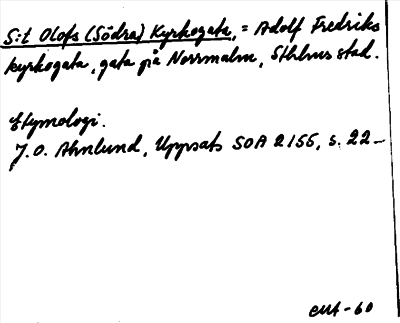 S:t Olofs (Södra) Kyrkogata, = Adolf Fredriks
kyrkogata, gata på Norrmalm, Sthlms stad.
Etymologi.
J. O. Ahnlund, Uppsats SOA 2155, s. 22–
EMA-60